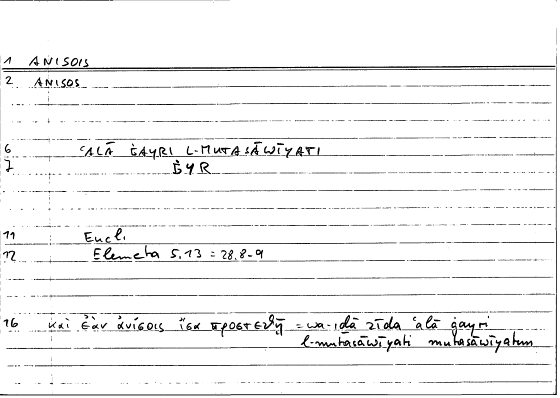 1 ANISOIS
2 ANISOS
6 ʿALĀ ĠAYRI L-MUTASĀWĪYATI
7 ĠYR
11 Eucl.
12 Elementa 5.13 = 28.8-9
16 καὶ ἐὰν ἀνίσοις ἴσα προστεθῇ = wa-iḏā zīda ʿalā ġayri
l-mutasāwīyati mutasāwīyatun